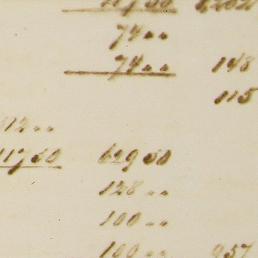 74 " "
74 " " 148
115
12 " "
11750 629 50
128 " "
100 " "
100 " " 957